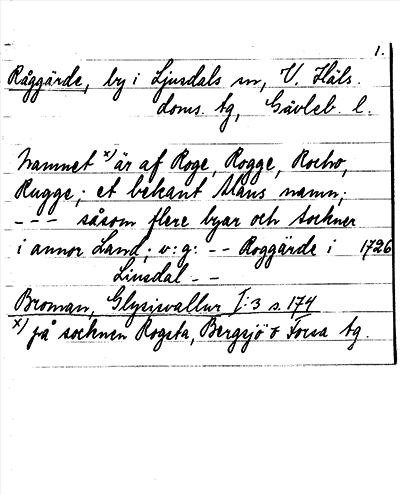 1.
Råggärde, by i Ljusdals sn, V. Häls.
doms. tg, Gävleb. l.
Namnet x) är af Roge, Rogge, Rocho,
Rugge; et bekant Mans namn;
--- såsom flere byar och Sockner
i annor Land; v:g: -- Roggärde i 1726
Liusdal --
Broman, Glysisvallur I:3 s. 174
x) på socknen Rogsta, Bergsjö o Forsa tg.